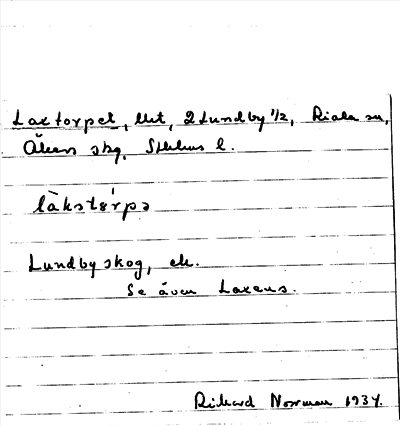 Laxtorpet, lht, 2 Lundby 1/2, Riala sn,
Åkers skg, Sthlms l.
làkstöŕpə
Lundby skog, ek.
Se även Laxens.
Rikard Norrman 1934.